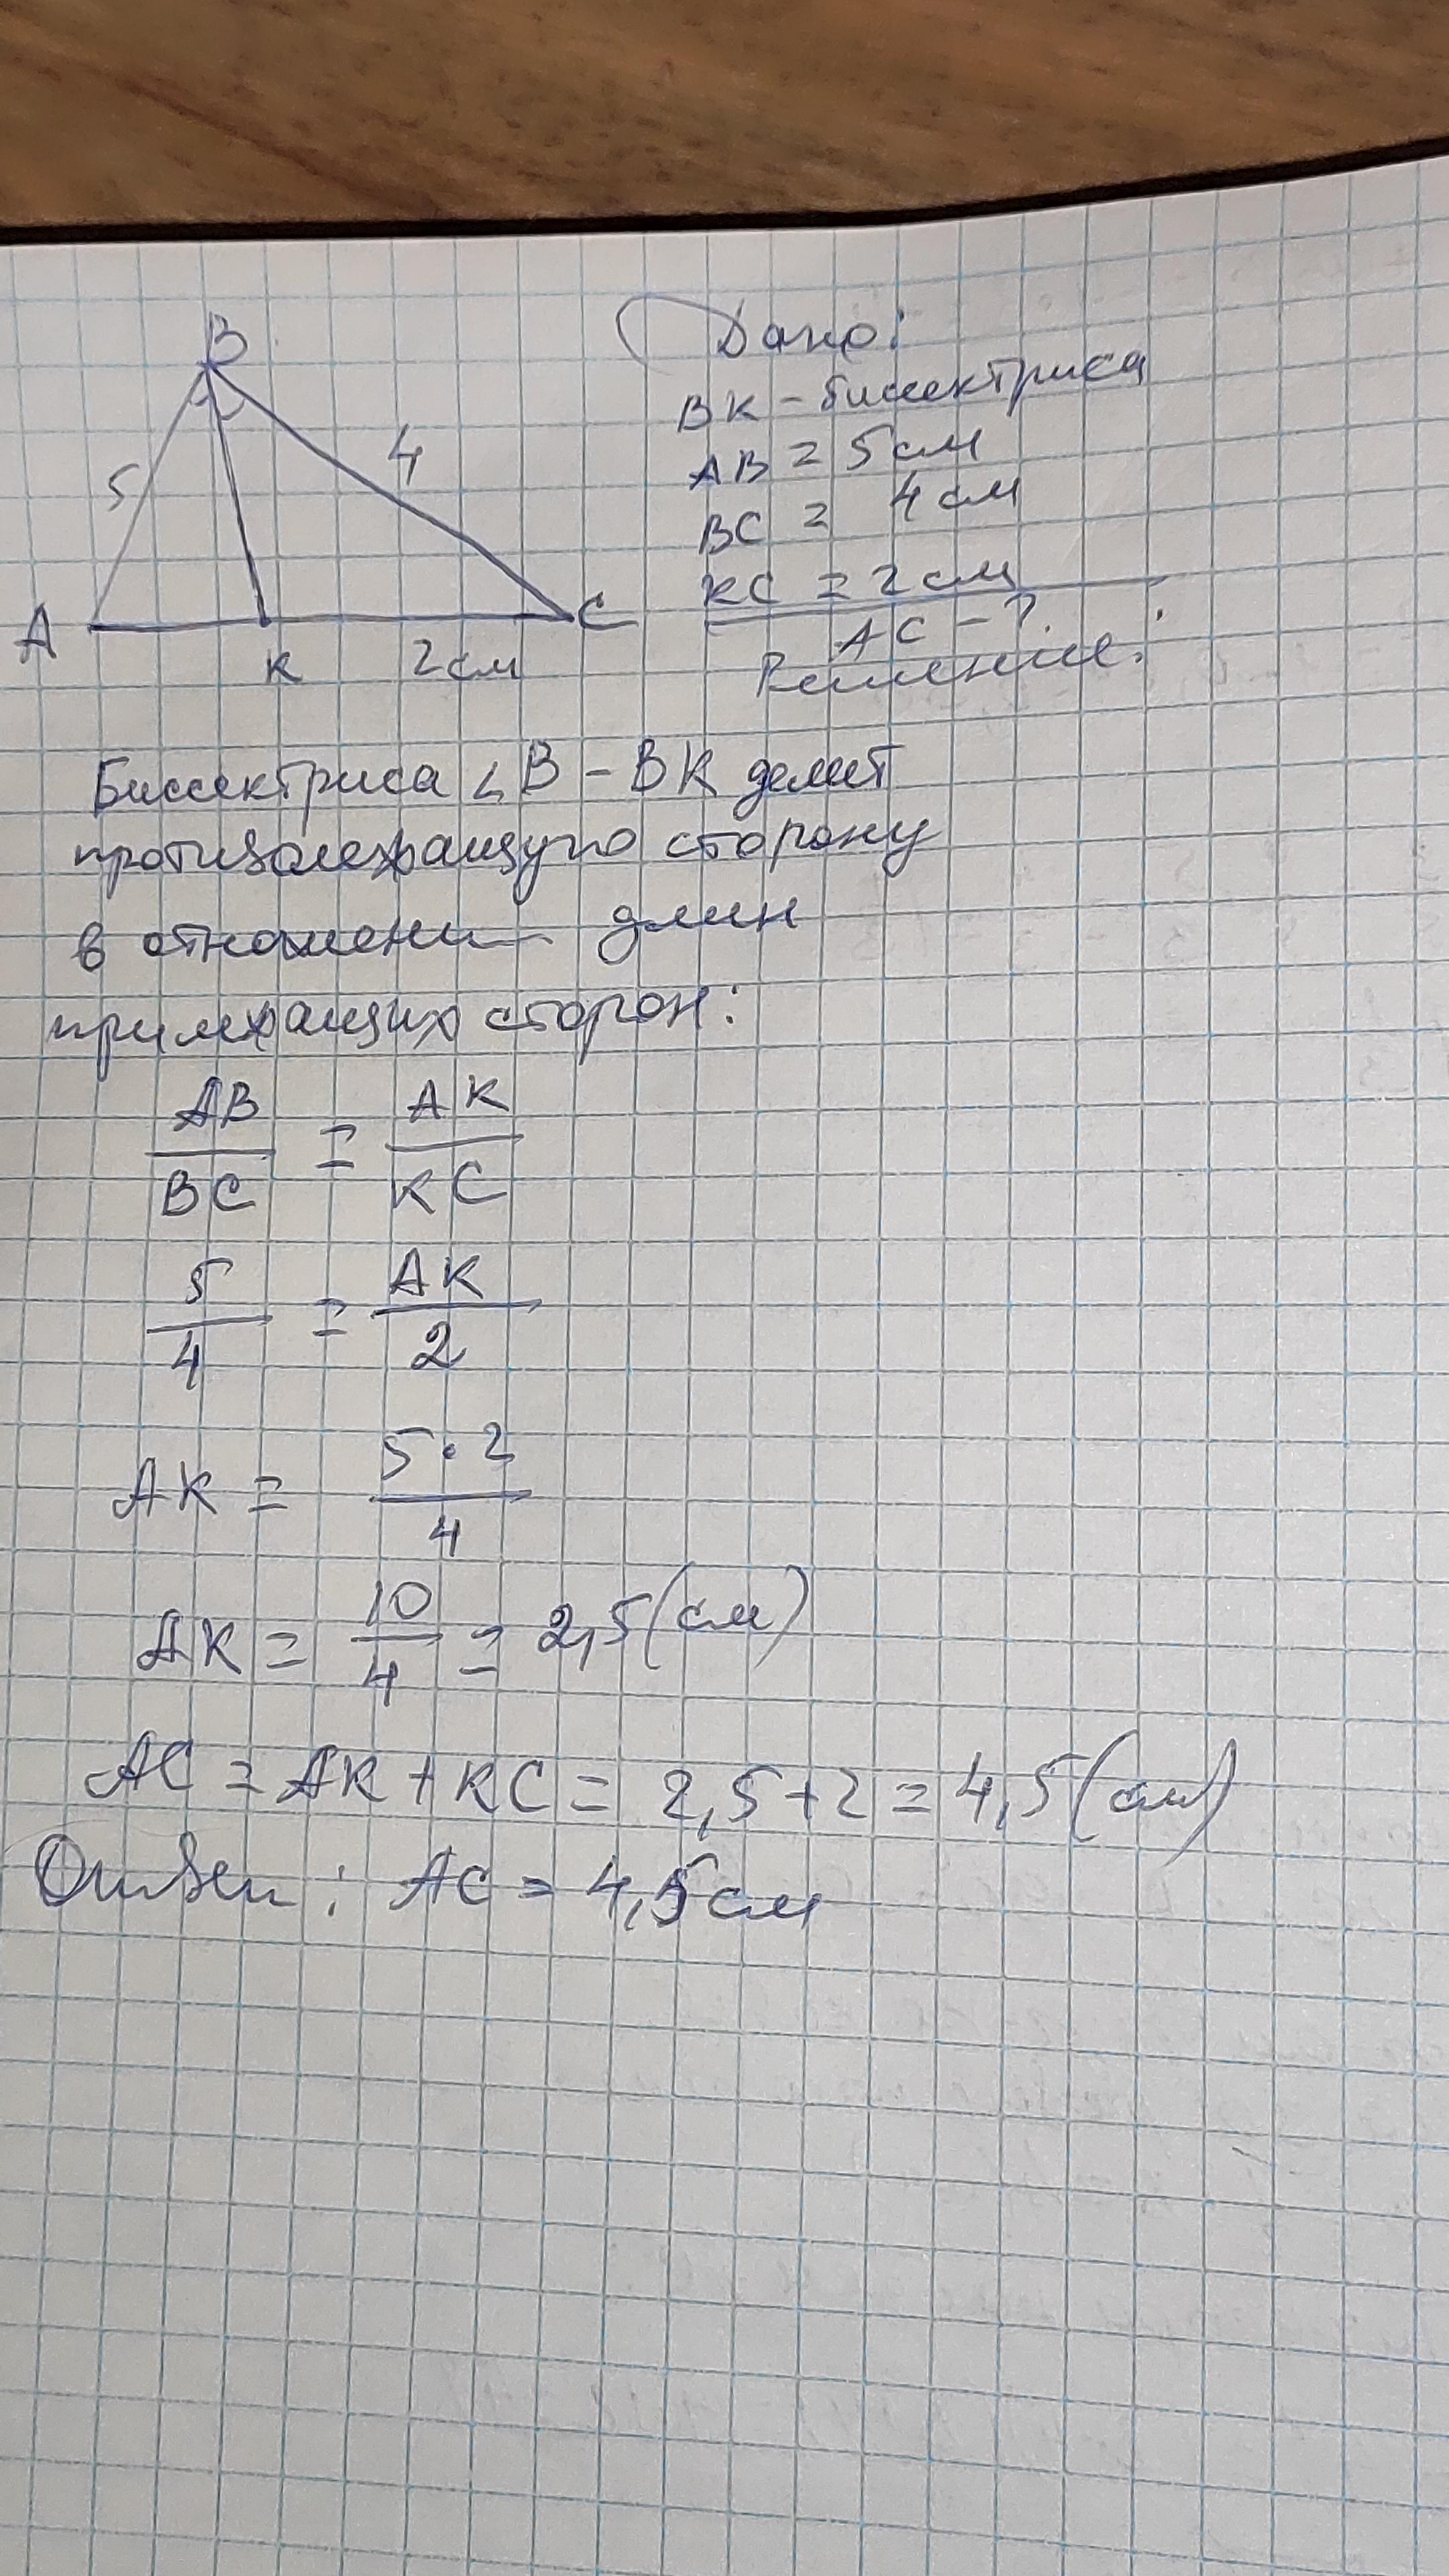 B
5
4
A
K
2 см
C
Дано:
BK - биссектриса
AB = 5 см
BC = 4 см
KC = 2 см
AC - ?
Решение:
Биссектриса ∠B - BK делит
противолежащую сторону
в отношении длин
прилежащих сторон:
AB/BC = AK/KC
5/4 = AK/2
AK = 5·2/4
AK = 10/4 = 2,5 (см)
AC = AK + KC = 2,5 + 2 = 4,5 (см)
Ответ: AC = 4,5 см